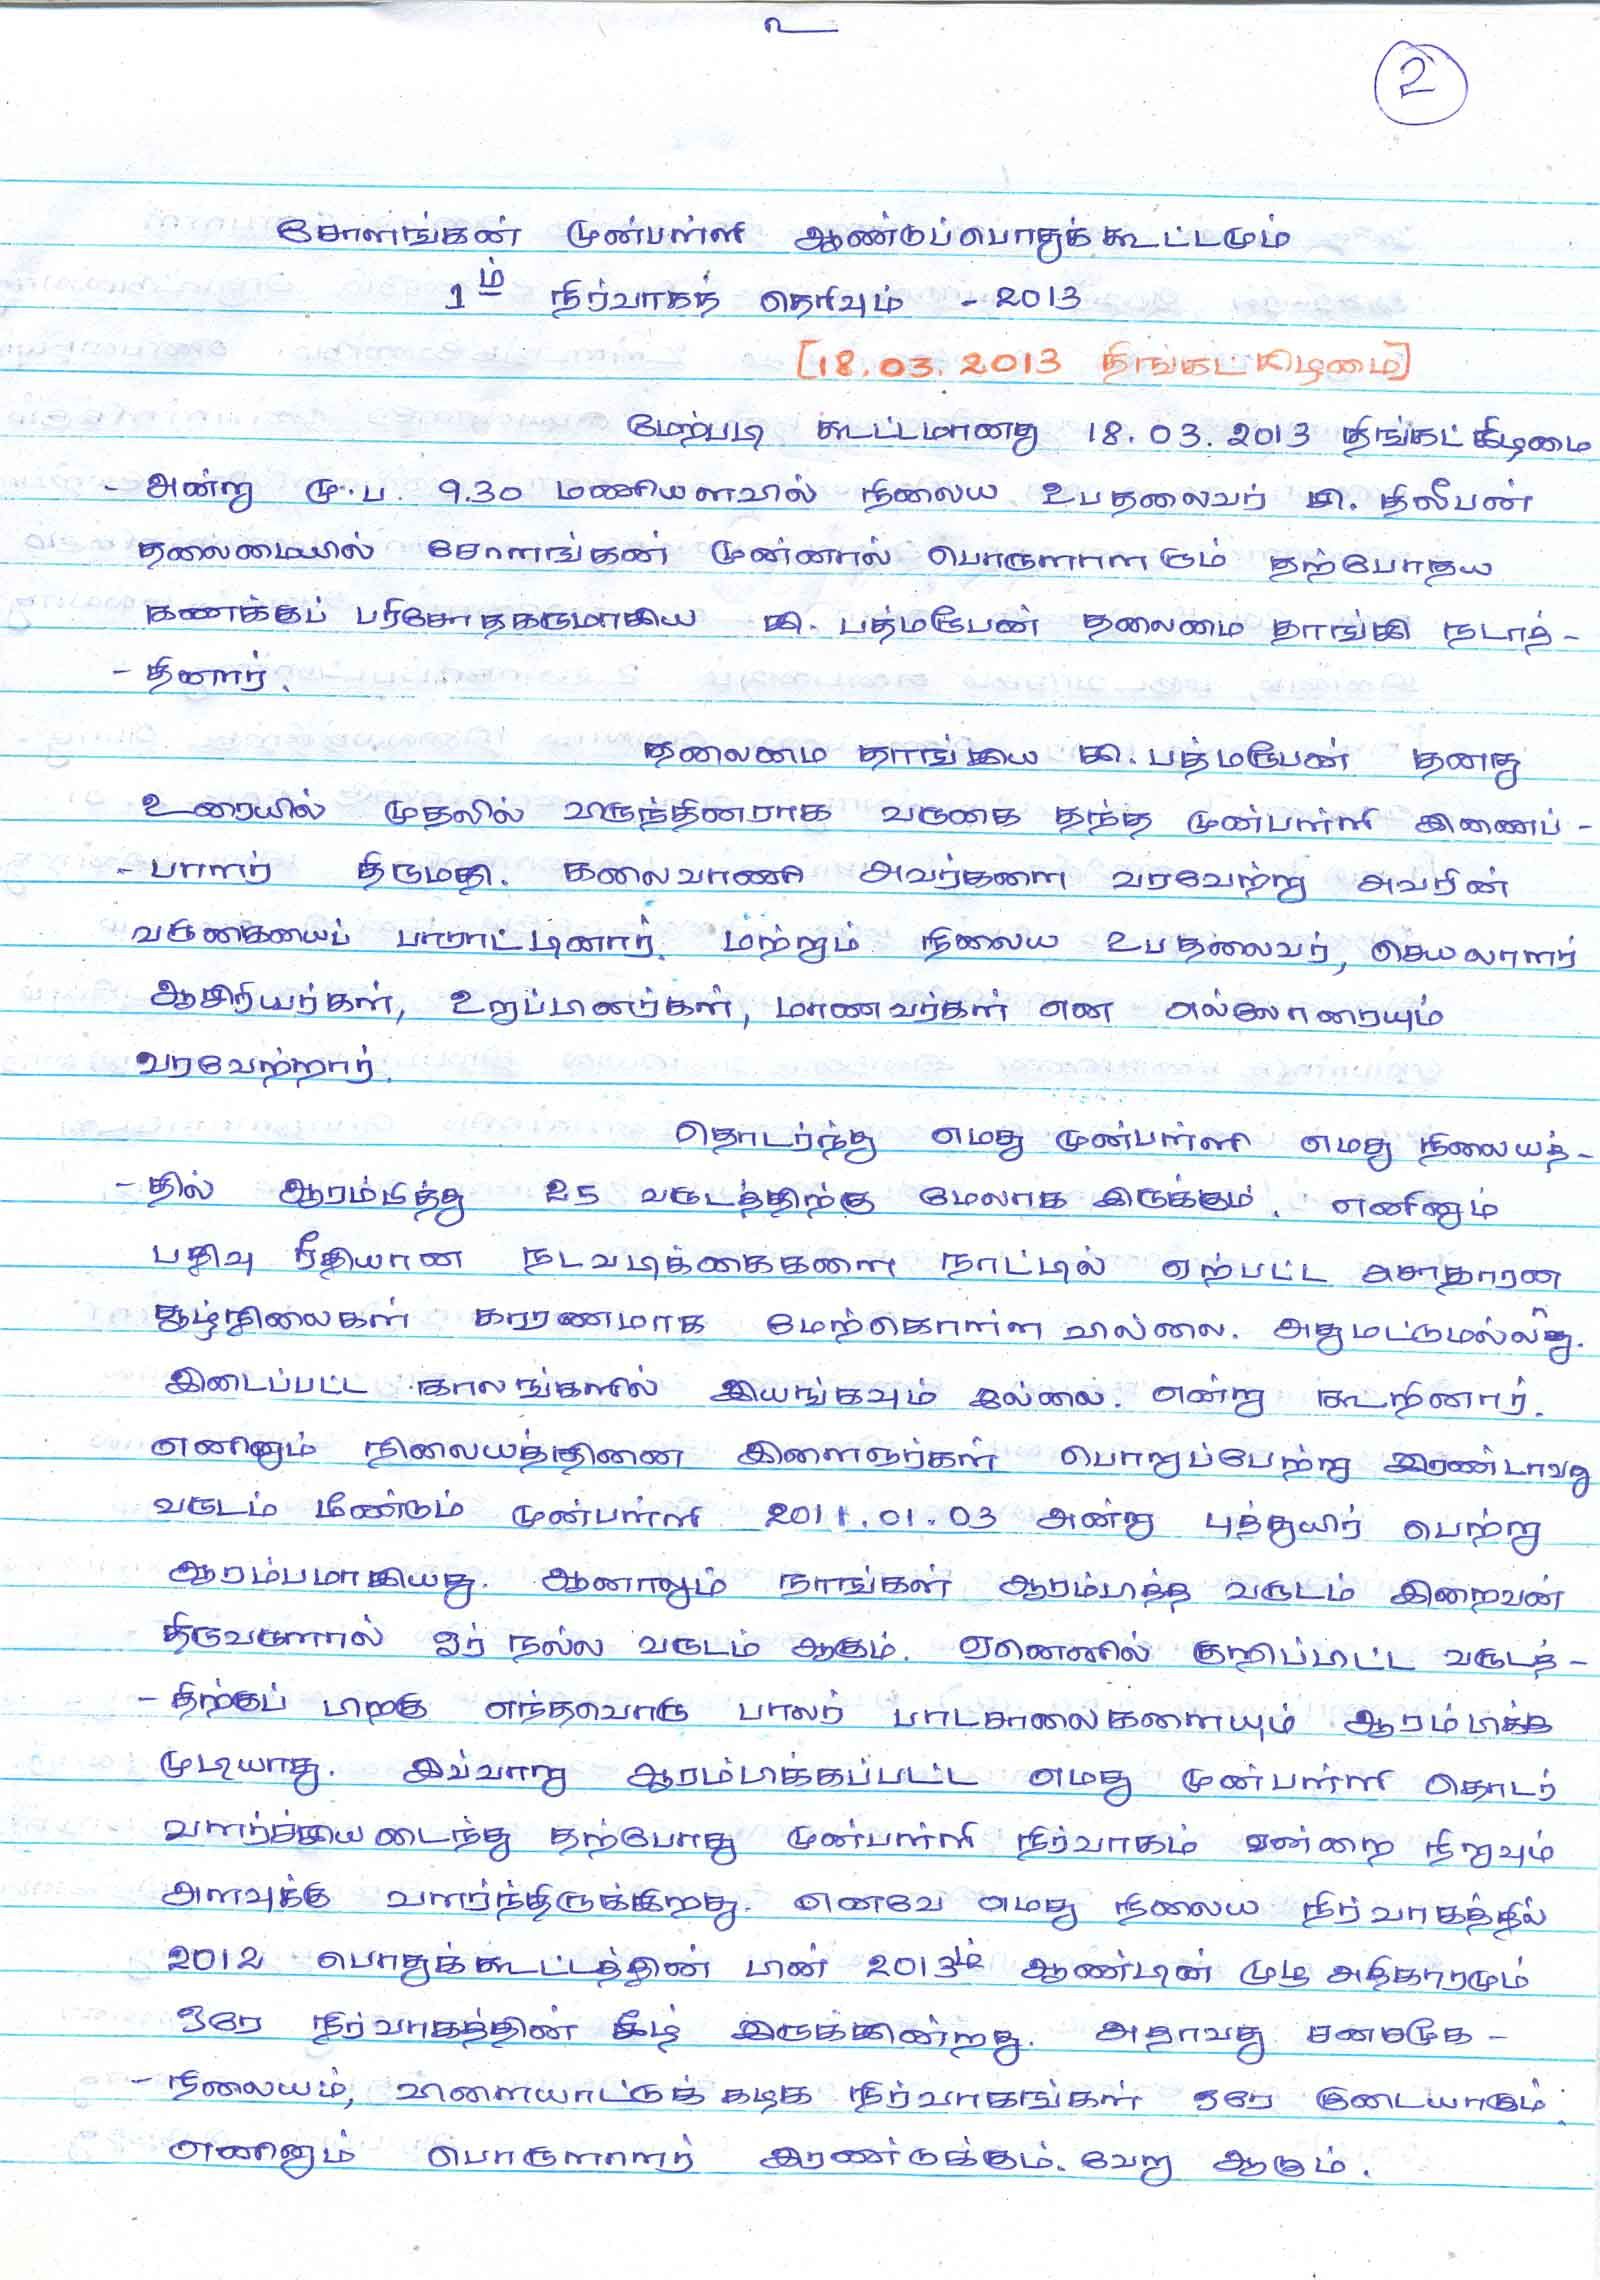 உ
2
சோளங்கன் முன்பள்ளி ஆண்டுப்பொதுக்கூட்டமும்
1ம் நிர்வாகத் தெரிவும் - 2013
[18.03.2013 திங்கட்கிழமை]
மேற்படி கூட்டமானது 18.03.2013 திங்கட்கிழமை
- அன்று மு.ப. 9.30 மணியளவில் நிலைய உபதலைவர் சி. திலீபன்
தலைமையில் சோளங்கன் முன்னால் பொருளாளரும் தற்போதய
கணக்கப் பரிசோதகருமாகிய கி. பத்மரூபேன் தலைமை தாங்கி நடாத்-
- தினார்.
தலைமை தாங்கிய கி. பத்மரூபேன் தனது
உரையில் முதலில் விருந்தினராக வருகை தந்த முன்பள்ளி இணைப்-
- பாளர் திருமதி. கலைவாணி அவர்களை வரவேற்று அவரின்
வருகையைப் பாராட்டினார். மற்றும் நிலைய உபதலைவர், செயலாளர்
ஆசிரியர்கள், உறுப்பினர்கள், மாணவர்கள் என எல்லோரையும்
வரவேற்றார்.
தொடர்ந்து எமது முன்பள்ளி எமது நிலையத்-
- தில் ஆரம்பித்து 25 வருடத்திற்கு மேலாக இருக்கும். எனினும்
பதிவு ரீதியான நடவடிக்கைகளை நாட்டில் ஏற்பட்ட அசாதாரண
சூழ்நிலைகள் காரணமாக மேற்கொள்ள வில்லை. அதுமட்டுமல்லாது.
இடைப்பட்ட காலங்களில் இயங்கவும் இல்லை. என்று கூறினார்.
எனினும் நிலையத்தினை இளைஞர்கள் பொறுப்பேற்று இரண்டாவது
வருடம் மீண்டும் முன்பள்ளி 2011.01.03 அன்று புத்துயிர் பெற்று
ஆரம்பமாகியது. ஆனாலும் நாங்கள் ஆரம்பித்த வருடம் இறைவன்
திருவருளால் ஓர் நல்ல வருடம் ஆகும். ஏனெனில் குறிப்பிட்ட வருடத்-
- திற்குப் பிறகு எந்தவொரு பாலர் பாடசாலைகளையும் ஆரம்பிக்க
முடியாது. இவ்வாறு ஆரம்பிக்கப்பட்ட எமது முன்பள்ளி தொடர்
வளர்ச்சியடைந்து தற்போது முன்பள்ளி நிர்வாகம் ஒன்றை நிறுவும்
அளவுக்கு வளர்ந்திருக்கிறது. எனவே எமது நிலைய நிர்வாகத்தில்
2012 பொதுக்கூட்டத்தின் பின் 2013ம் ஆண்டின் முழு அதிகாரமும்
ஒரே நிர்வாகத்தின் கீழ் இருக்கின்றது. அதாவது சனசமூக -
- நிலையம், விளையாட்டுக்கழக நிர்வாகங்கள் ஒரே குடையாகும்.
எனினும் பொருளாளர் இரண்டுக்கும். வேறு ஆகும்.